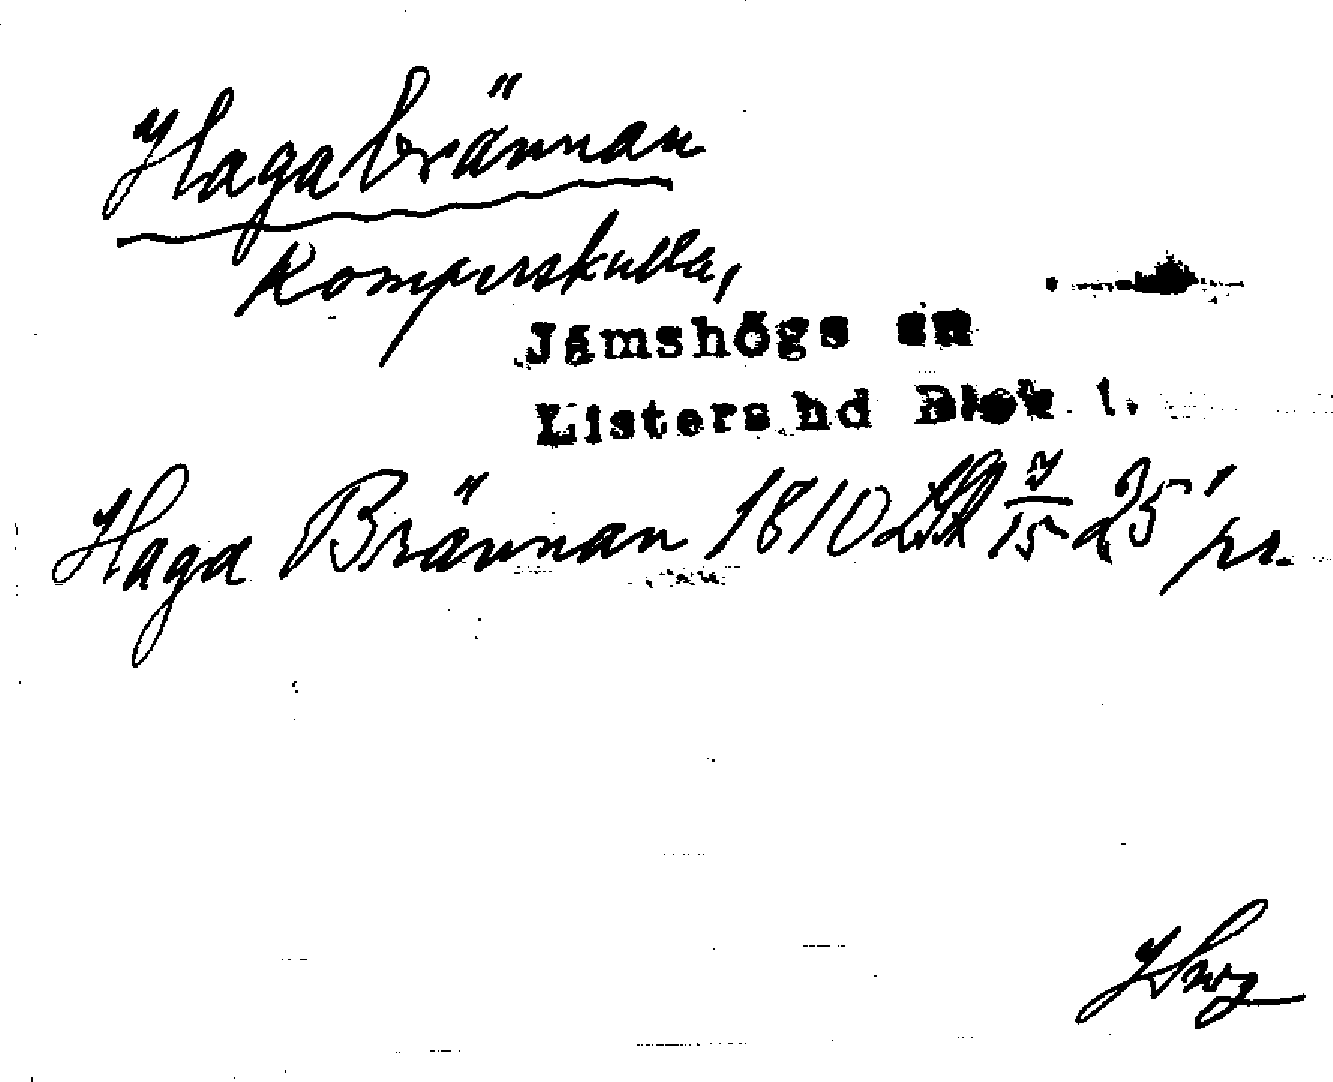 Hagabrännan
Komperskulla,
Jämshögs sn
Listers hd Blek l.
Haga Brännan 1810 LSA 7/15 a 25' ps.